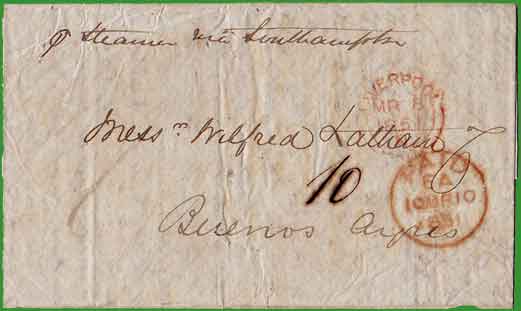 p Steamer via Southampton
LIVERPOOL
MR 8
1851
Mess rs Wilfred Latham
10
PAID
10MR10
1851
Buenos Ayres